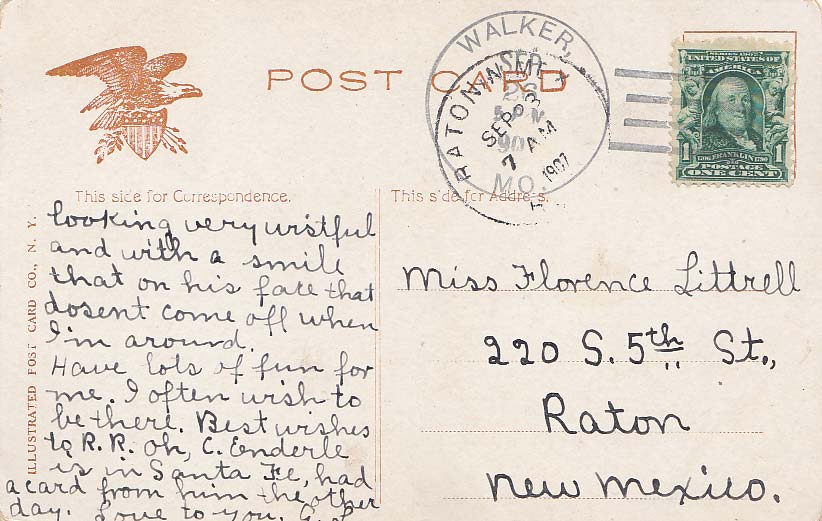 POST CARD
WALKER,
SEP
26
5 PM
190
MO.
RATON N.M.
SEP
7 AM
1907
SERIES 1902
UNITED STATES OF
AMERICA
1 1
1706 FRANKLIN 1790
POSTAGE
ONE CENT
This side for Correspondence.
This side for Address.
ILLUSTRATED POST CARD CO., N. Y.
looking very wistful
and with a smile
that on his face that
dosent come off when
I'm around.
Have lots of fun for
me. I often wish to
be there. Best wishes
to R. R. Oh, C. Enderle
is in Santa Fe, had
a card from him the other
day. Love to you,
Miss Florence Littrell
220 S. 5th St.,
Raton
New Mexico.